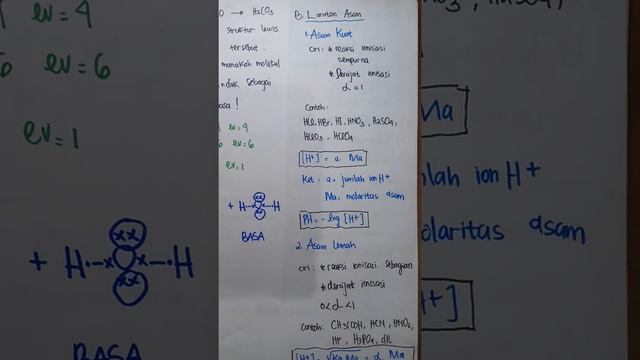 O → H2CO3
struktur lewis
tersebut.
manakah molekul
ndak sebagai
basa!
ev = 4
ev = 6
ev = 1
+ H·—×O×—·H
BASA
B. Larutan Asam
1. Asam Kuat
Ciri: * reaksi ionisasi
sempurna
* Derajat ionisasi
α = 1
Contoh:
HCl, HBr, HI, HNO3, H2SO4,
HClO3, HClO4
[H+] = a Ma
Ket: a = jumlah ion H+
Ma = molaritas asam
PH = - log [H+]
2. Asam Lemah
Ciri: * reaksi ionisasi sebagian
* derajat ionisasi
0 < α < 1
Contoh: CH3COOH, HCN, HNO2,
HF, H3PO4, dll
[H+] = √Ka.Ma = α Ma
ev = 4
ev = 6
ev = 1
+ H·—× ×—·H
BASA
Ma
lah ion H+
olaritas asam
H+]